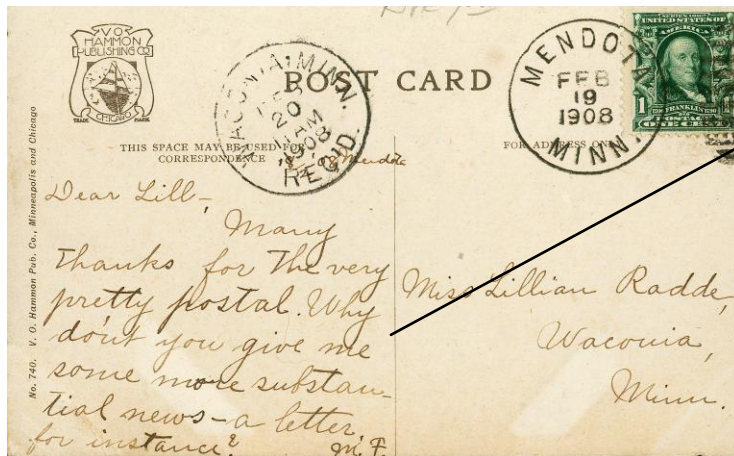 V.O.
HAMMON
PUBLISHING CO
CHICAGO
TRADE MARK
WACONIA, MINN.
20
AM
1908
REC'D.
POST CARD
MENDOTA
FEB
19
1908
MINN.
SERIES 1902
UNITED STATES OF
AMERICA
FRANKLIN
POSTAGE
1 ONE CENT 1
THIS SPACE MAY BE USED FOR
CORRESPONDENCE
Mendota
FOR ADDRESS ONLY
No. 740. V. O. Hammon Pub. Co., Minneapolis and Chicago
Dear Lill-
Many
thanks for the very
pretty postal. Why
don't you give me
some more substan-
tial news - a letter,
for instance?
M. F.
Miss Lillian Radde,
Waconia,
Minn.